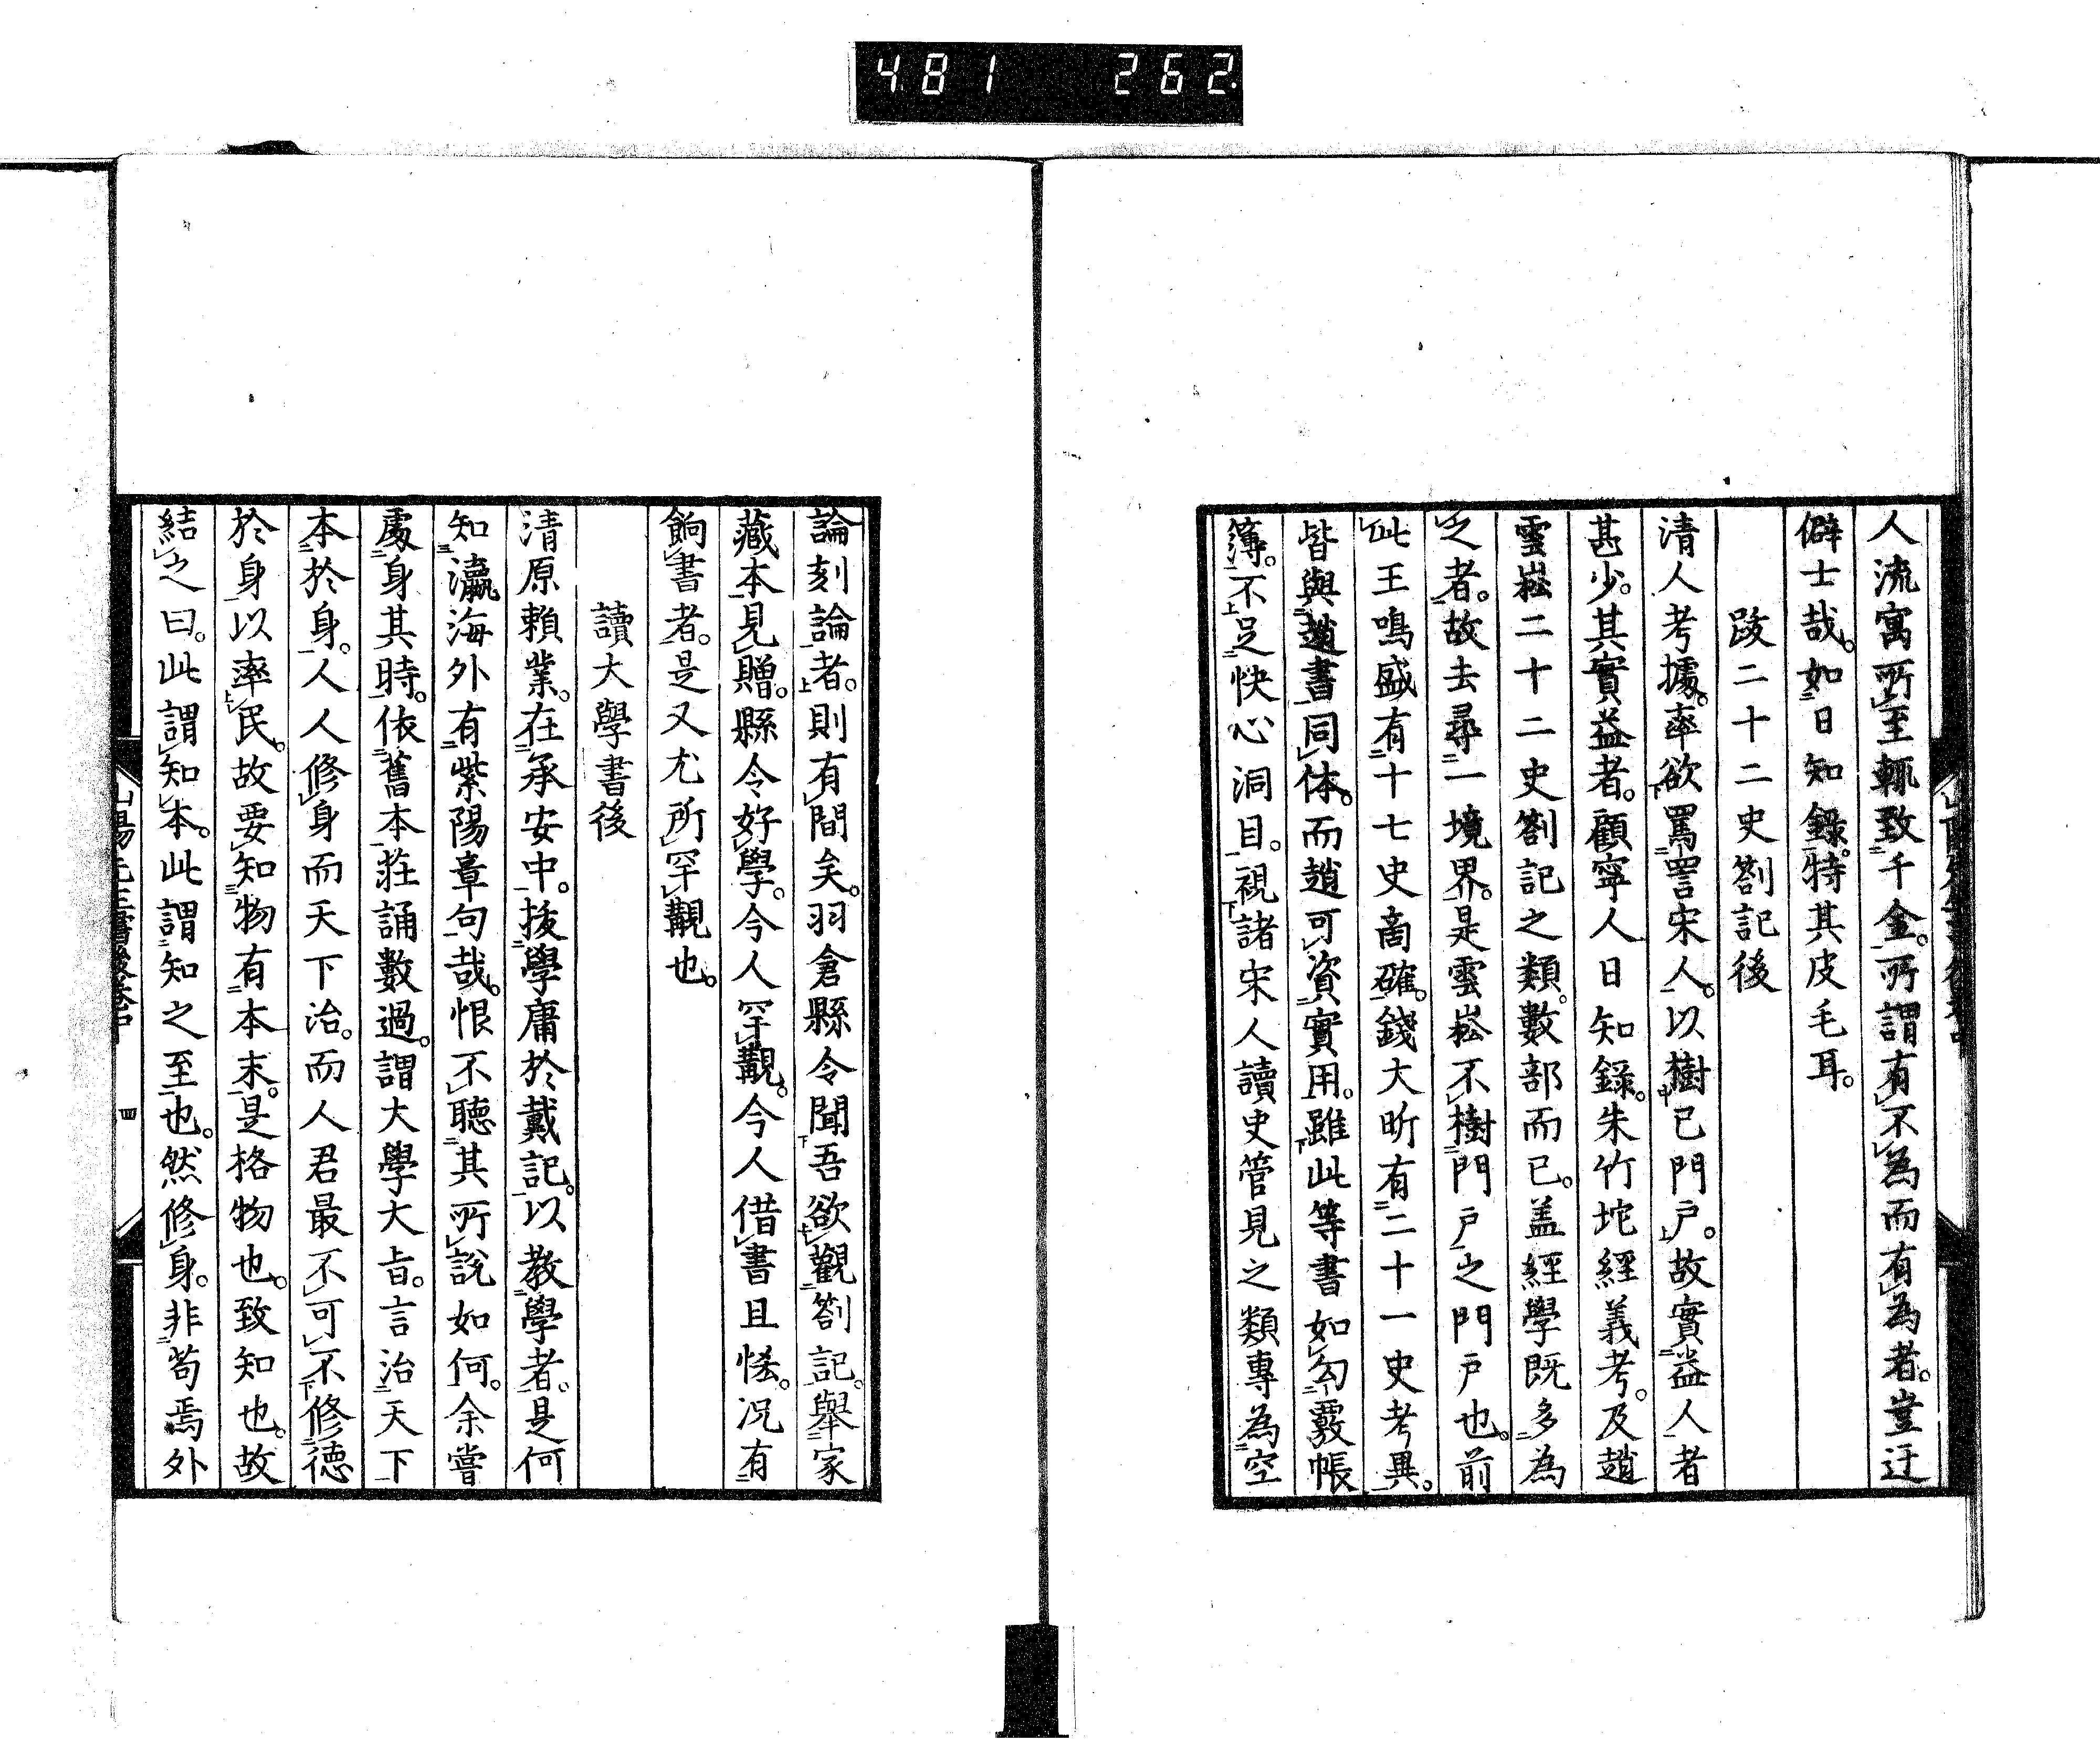 481 262
人流寓所至輙致千金。所謂有不為而有為者。豈迂
僻士哉。如日知錄。特其皮毛耳。
跋二十二史劄記後
清人考據。率欲罵詈宋人。以樹已門戶。故實益人者
甚少。其實益者。顧寧人日知錄。朱竹坨經義考。及趙
雲崧二十二史劄記之類。數部而已。盖經學既多為
之者。故去尋一境界。是雲崧不樹門戶之門戶也。前
此王鳴盛有十七史商確。錢大昕有二十一史考異。
皆與趙書同体。而趙可資實用。雖此等書如勾覈帳
簿。不足快心洞目。視諸宋人讀史管見之類專為空
論刻論者。則有間矣。羽倉縣令聞吾欲觀劄記。舉家
藏本見贈。縣令好學。今人罕覯。今人借書且恡。况有
餉書者。是又尤所罕覯也。
讀大學書後
清原賴業。在承安中。拔學庸於戴記。以教學者。是何
知瀛海外有紫陽章句哉。恨不聴其所說如何。余嘗
處身其時。依舊本莊誦數過。謂大學大旨。言治天下
本於身。人人修身而天下治。而人君最不可不修德
於身以率民。故要知物有本末。是格物也。致知也。故
結之曰。此謂知本。此謂知之至也。然修身。非苟焉外
四